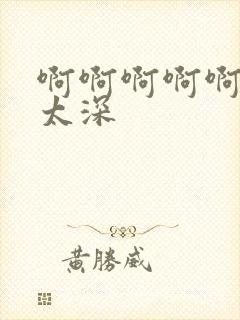 啊啊啊啊啊
太深
黄勝威